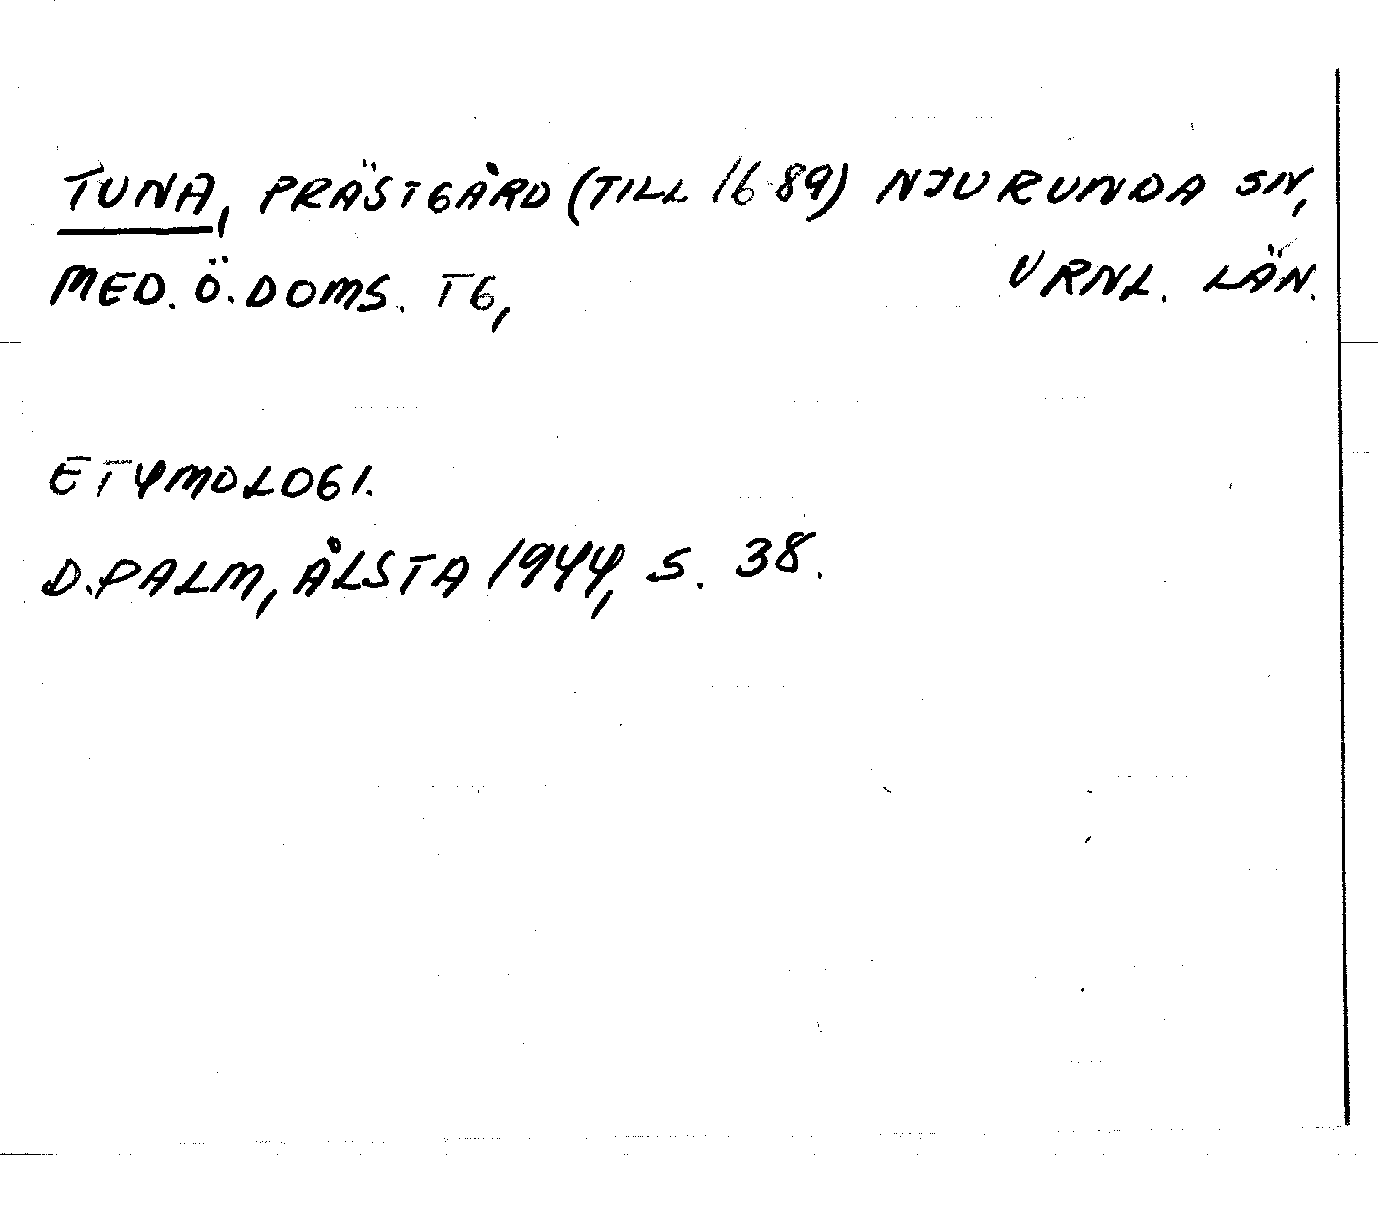 TUNA, PRÄSTGÅRD (TILL 1689) NJURUNDA SN,
MED. Ö. DOMS. TG, VRNL. LÄN.
ETYMOLOGI.
D. PALM, ÅLSTA 1944, S. 38.